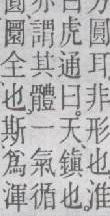 白虎通曰天鎮也
圓耳非形也渾
亦謂其體一氣循
圜全也斯爲渾